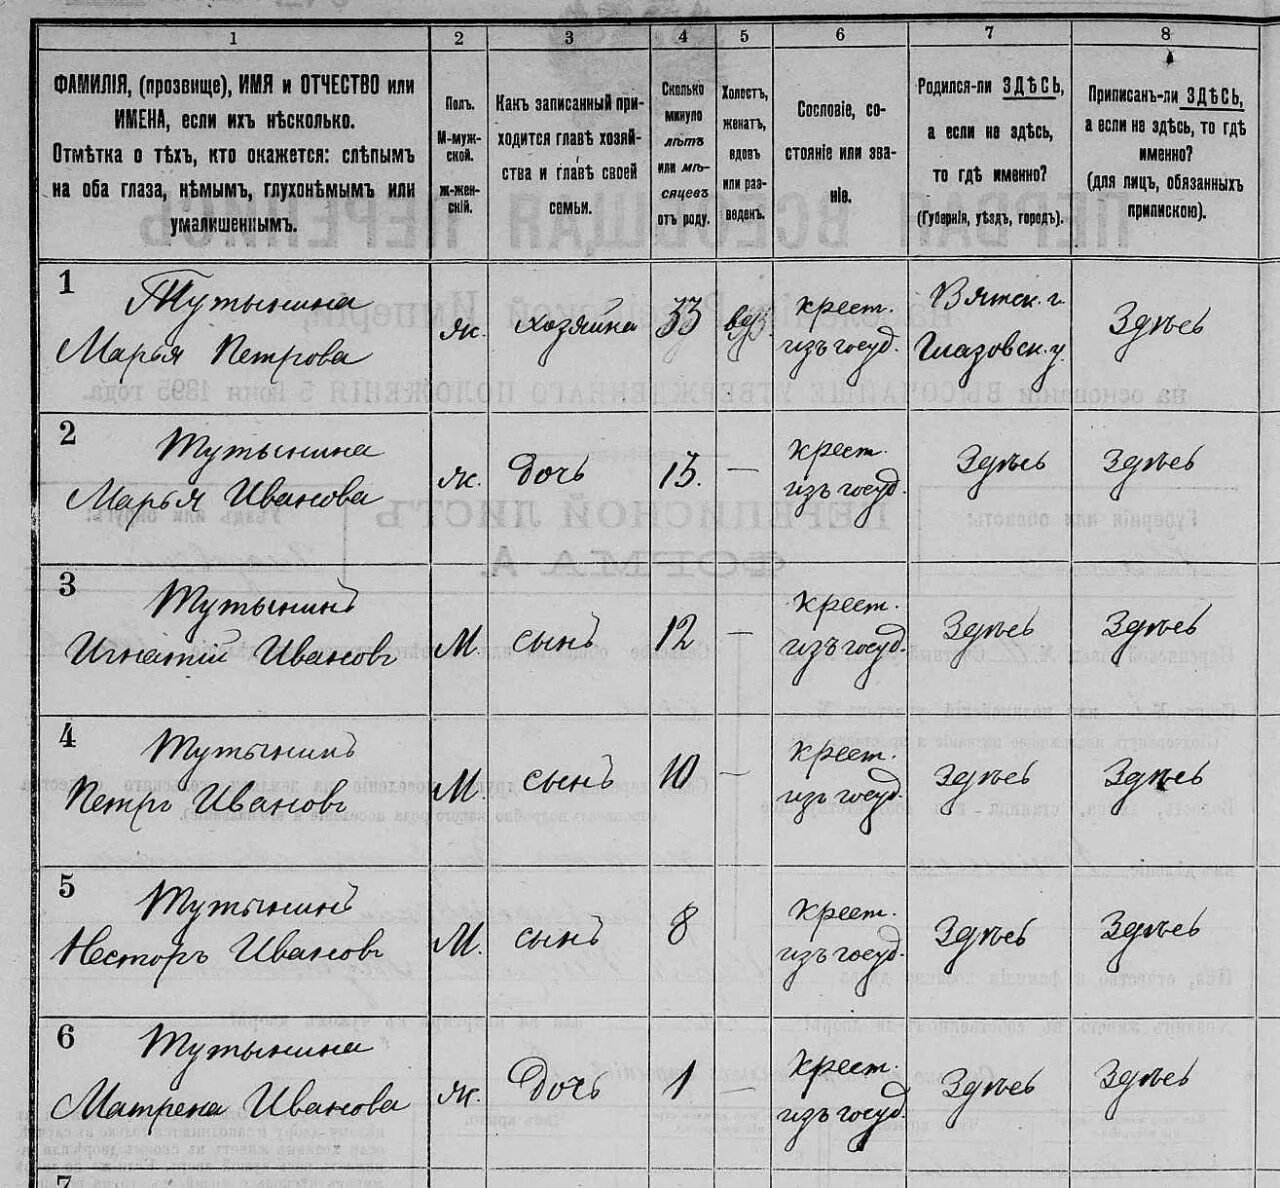 1 2 3 4 5 6 7 8
ФАМИЛІЯ, (прозвище), ИМЯ и ОТЧЕСТВО или
ИМЕНА, если ихъ нѣсколько.
Отмѣтка о тѣхъ, кто окажется: слѣпымъ
на оба глаза, нѣмымъ, глухонѣмымъ или
умалишеннымъ.
Полъ.
М-муж-
ской.
ж-жен-
скій.
Какъ записанный при-
ходится главѣ хозяй-
ства и главѣ своей
семьи.
Сколько
минуло
лѣтъ
или мѣ-
сяцевъ
отъ роду.
Холостъ,
женатъ,
вдовъ
или раз-
веденъ.
Сословіе, со-
стояніе или зва-
ніе.
Родился-ли ЗДѢСЬ,
а если не здѣсь,
то гдѣ именно?
(Губернія, уѣздъ, городъ).
Приписанъ-ли ЗДѢСЬ,
а если не здѣсь, то гдѣ
именно?
(для лицъ, обязанныхъ
припискою).
1
Тутынина
Марья Петрова
ж.
хозяйка
33
вдв.
крест.
изъ госуд.
Вятск. г.
Глазовск. у.
Здѣсь
2
Тутынина
Марья Иванова
ж.
дочь
13.
—
крест.
изъ госуд.
Здѣсь
Здѣсь
3
Тутынинъ
Игнатій Ивановъ
М.
сынъ
12
—
крест.
изъ госуд.
Здѣсь
Здѣсь
4
Тутынинъ
Петръ Ивановъ
М.
сынъ
10
—
крест.
изъ госуд.
Здѣсь
Здѣсь
5
Тутынинъ
Несторъ Ивановъ
М.
сынъ
8
крест.
изъ госуд.
Здѣсь
Здѣсь
6
Тутынина
Матрена Иванова
ж.
дочь
1
—
крест.
изъ госуд.
Здѣсь
Здѣсь
7